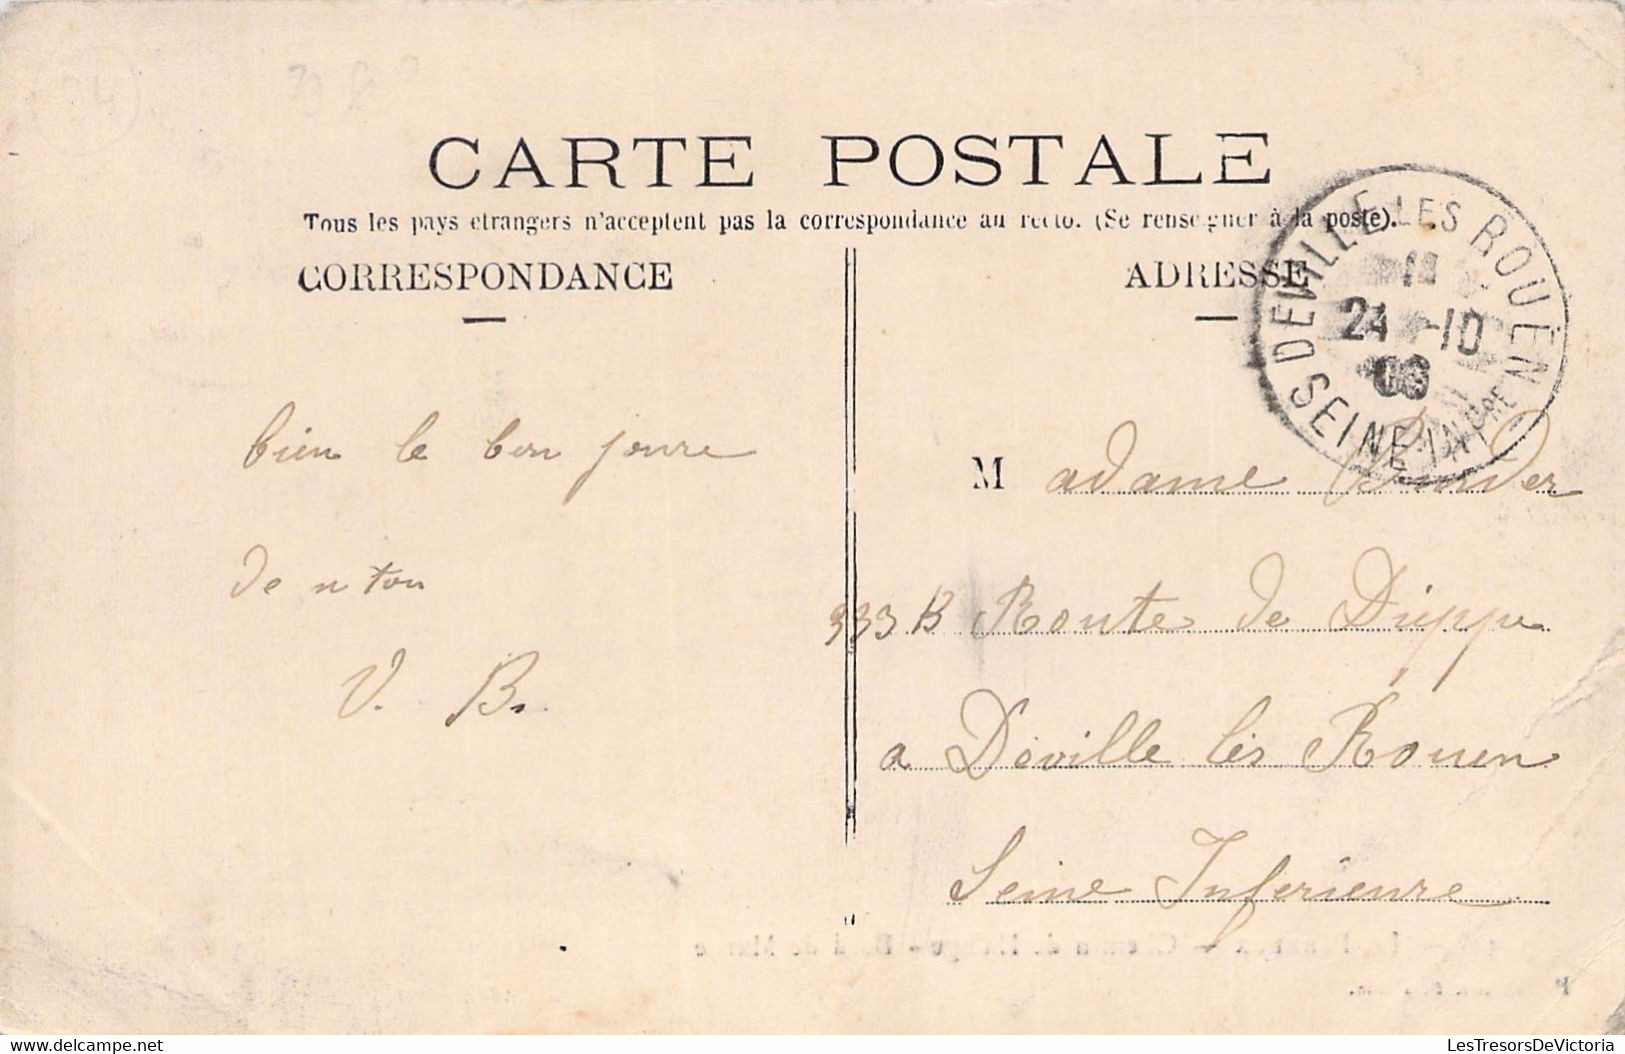 CARTE POSTALE
Tous les pays étrangers n'acceptent pas la correspondance au recto. (Se renseigner à la poste).
CORRESPONDANCE
ADRESSE
DEVILLE LES ROUEN
24 -10
08
SEINE
bien le bon joure
de n ton
V. B.
Madame
333 B Route de Dieppe
a Déville lès Rouen
Seine Inferieure
Delcampe.net
LesTresorsDeVictoria